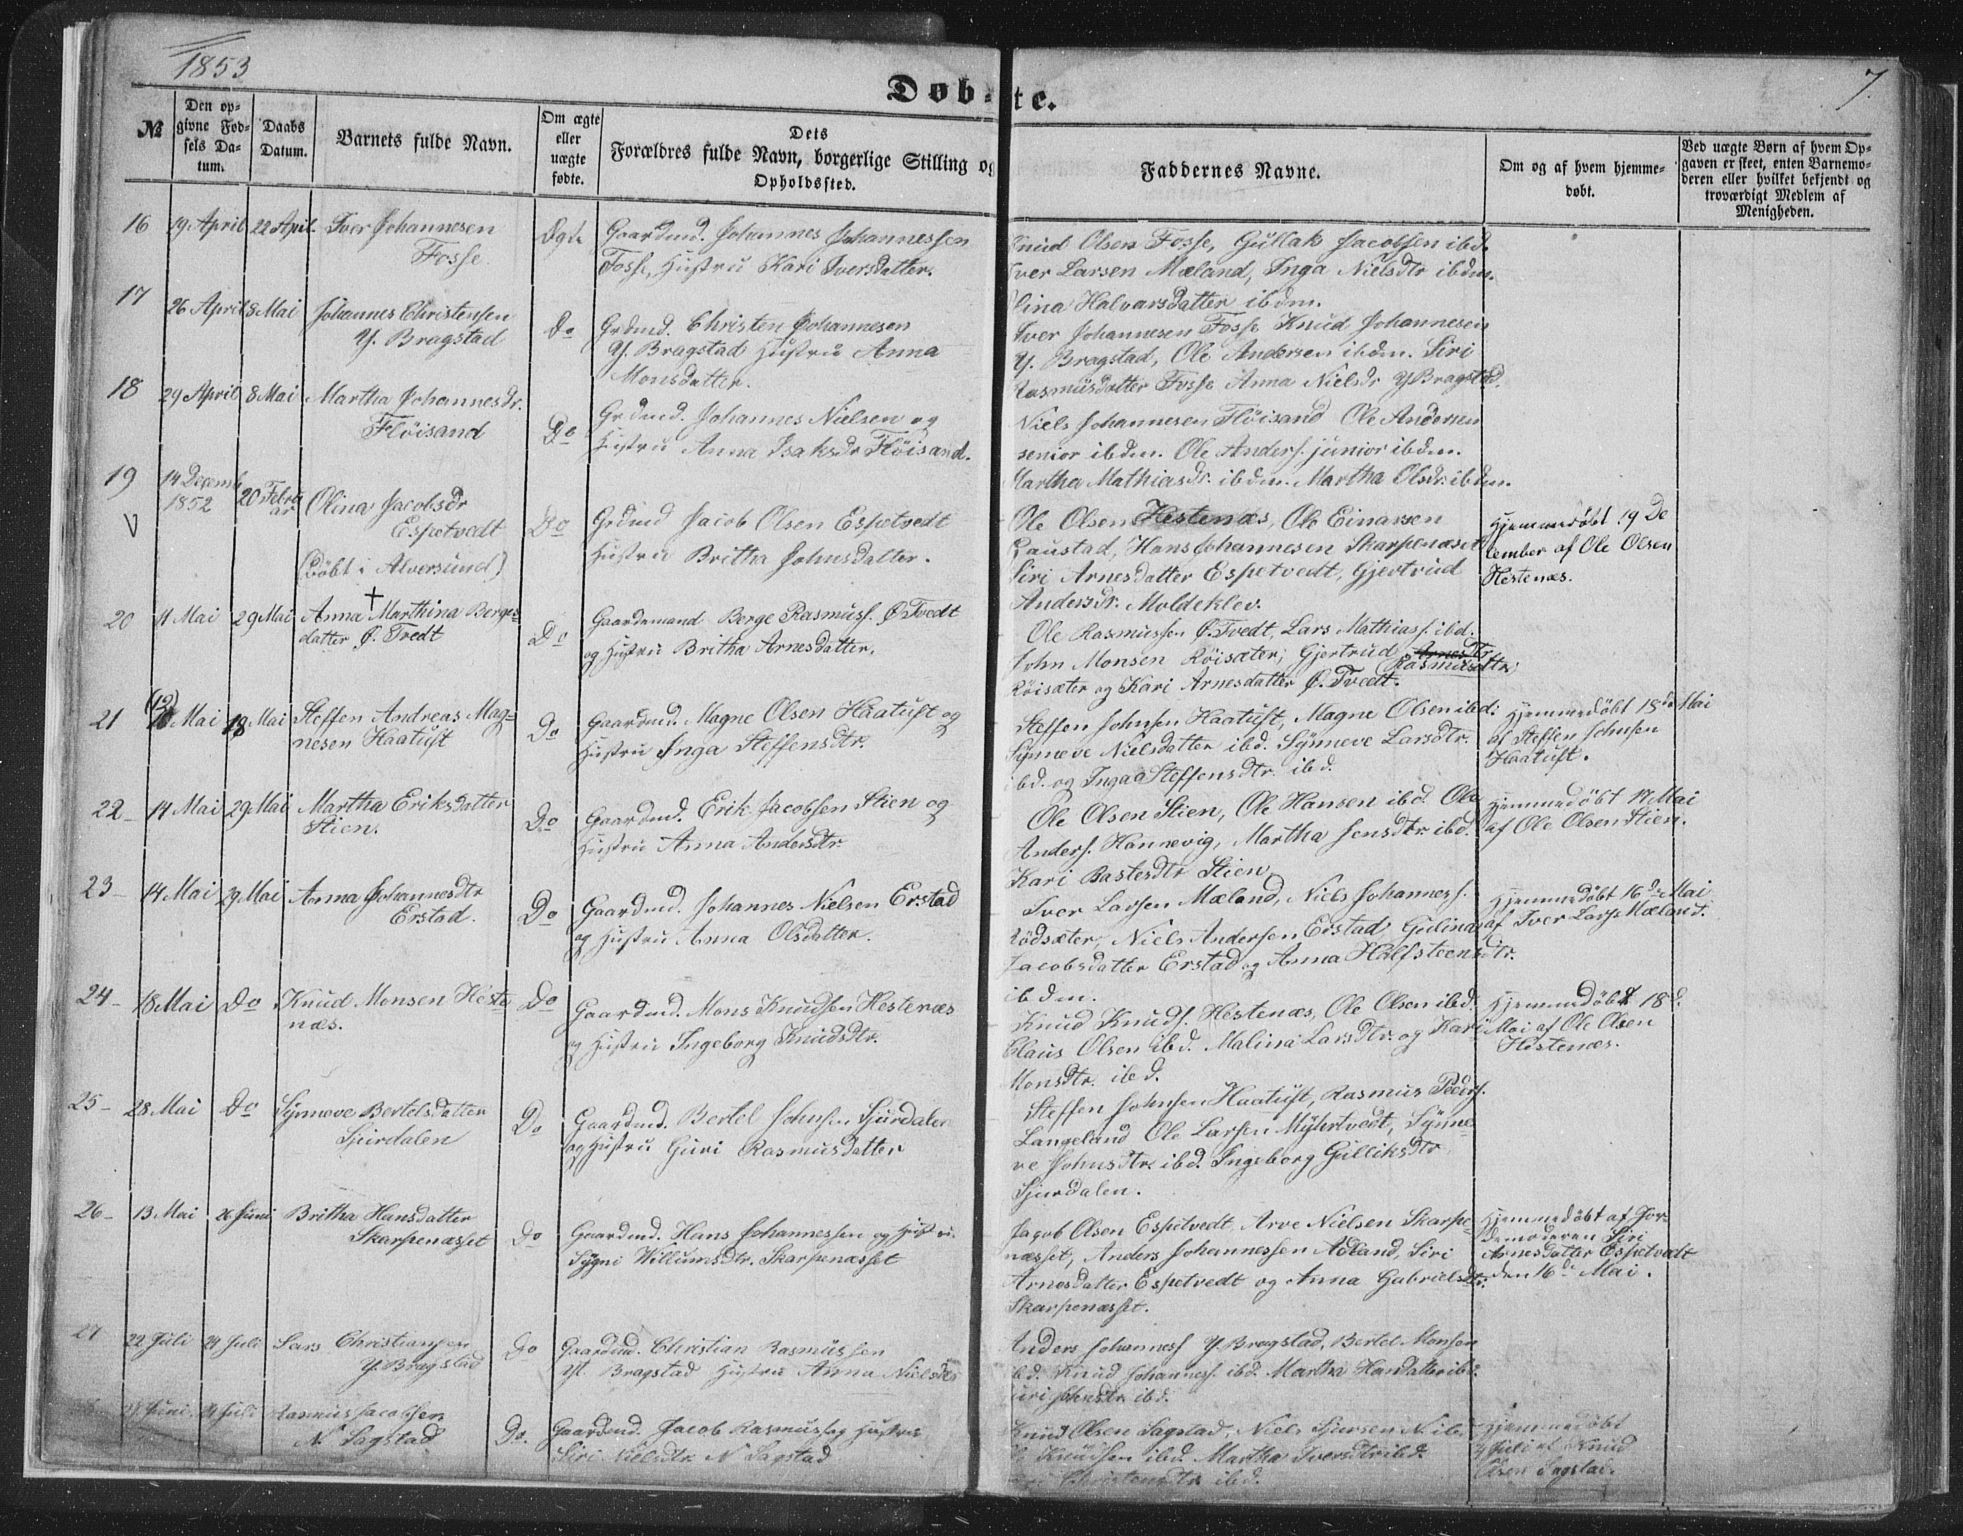 1853
7.
Døb-te.
№
Den op-
givne Fød-
sels Da-
tum.
Daabs
Datum.
Barnets fulde Navn.
Om ægte
eller
uægte
fødte.
Dets
Forældres fulde Navn, borgerlige Stilling og
Opholdssted.
Faddernes Navne.
Om og af hvem hjemme-
døbt.
Ved uægte Børn af hvem Op-
gaven er skeet, enten Barnemo-
deren eller hvilket bekjendt og
troværdigt Medlem af
Menigheden.
16 19 April 22 April. Iver Johannesen
Fosse
Ægte
Gaardmd. Johannes Johannessen
Fosse, Hustru Kari Iversdatter.
Knud Olsen Fosse, Gullak Jacobsen ibd.
Iver Larsen Mæland, Inga Nielsdtr ibdm.
Olina Halvarsdatter ibdm.
17 26 April 8 Mai Johannes Christensen
Y. Bragstad
Do
Grdmd. Christen Johannesen
Y. Bragstad Hustru Anna
Monsdatter.
Iver Johannesen Fosse Knud Johannesen
Y. Bragstad, Ole Andersen ibdm. Siri
Rasmusdatter Fosse Anna Nielsdr Y Bragstad.
18 29 April 8 Mai Martha Johannesdr.
Fløisand
Do
Grdmd. Johannes Nielsen og
Hustru Anna Isaksdr Fløisand.
Niels Johannesen Fløisand Ole Andersen
senior ibdm. Ole Anders. junior ibdm.
Martha Mathiasdr. ibdm. Martha Olsdr. ibdm.
19 14 Decemb
1852 20 Febru
ar Olina Jacobsdr
Espetvedt
(Døbt i Alversund)
V
Do
Grdmd Jacob Olsen Espetvedt
Hustru Britha Johnsdatter.
Ole Olsen Hestenæs, Ole Einarsen
Taustad, Hans Johannesen Skarpenæset
Siri Arnesdatter Espetvedt, Gjertrud
Andersdr. Moldeklev.
Hjemmedøbt 19 De
cember af Ole Olsen
Hestenæs.
20 11 Mai 29 Mai Anna Marthina Berges-
datter Ø. Tvedt
+
Do
Gaardmand Berge Rasmuss. Ø. Tvedt
og Hustru Britha Arnesdatter.
Ole Rasmussen Ø. Tvedt, Lars Mathiass. ibd.
John Monsen Røisæter, Gjertrud Arnesdtr
Rasmusdtr.
Røisæter og Kari Arnesdatter Ø. Tvedt.
21 (12) 18 Mai 18 Mai Steffen Andreas Mag-
nesen Haatuft
Do
Gaardmd. Magne Olsen Haatuft og
Hustru Inga Steffensdtr.
Steffen Johnsen Haatuft, Magne Olsen ibd.
Synneve Nielsdatter ibd. Synneve Larsdtr.
ibd. og Inga Steffensdtr. ibd.
Hjemmedøbt 18de Mai
af Steffen Johnsen
Haatuft.
22 14 Mai 29 Mai Martha Eriksdatter
Stien.
Do
Gaardmd. Erik Jacobsen Stien og
Hustru Anna Andersdtr.
Ole Olsen Stien, Ole Hansen ibd. Ole
Anders. Hannevig, Martha Jensdtr ibd.
Kari Bastesdtr Stien.
Hjemmedøbt 17 Mai
af Ole Olsen Stien.
23 14 Mai 29 Mai Anna Johannesdtr
Erstad.
Do
Gaardmd. Johannes Nielsen Erstad
og Hustru Anna Olsdatter.
Iver Larsen Mæland, Niels Johanness.
Rødsæter, Niels Andersen Erstad Gulina
Jacobsdatter Erstad og Anna Halfsteensdtr.
ibdm.
Hjemmedøbt 16de Mai
af Iver Larss. Mæland.
24 18 Mai Do Knud Monsen Heste
næs.
Do
Gaardmd. Mons Knudsen Hestenæs
og Hustru Ingeborg Knudsdtr.
Knud Knuds. Hestenæs, Ole Olsen ibd.
Claus Olsen ibd. Malina Larsdtr. og Kari
Monsdtr. ibd.
Hjemmedøbt 18d.
Mai af Ole Olsen
Hestenæs.
25 28 Mai Do Synneve Bertelsdatter
Sjurdalen
Do
Gaardmd. Bertel Johnsen Sjurdalen
og Hustru Guri Rasmusdatter
Steffen Johnsen Haatuft, Rasmus Peders.
Langeland Ole Larsen Myhrtvedt, Synne-
ve Johnsdtr. ibd. Ingeborg Gulliksdtr
Sjurdalen.
26 13 Mai 26 Juni Britha Hansdatter
Skarpenæsset
Do
Gaardmd. Hans Johannessen og Hustru.
Sygni Willumsdtr. Skarpenæsset
Jacob Olsen Espetvedt, Arve Nielsen Skarpe-
næsset, Anders Johannessen Adland, Siri
Arnesdatter Espetvedt og Anna Gabrielsdtr.
Skarpenæsset.
Hjemmedøbt af Jor-
demoderen Siri
Arnesdatter Espetvedt
den 16de Mai.
27 22 Juli 24 Juli Lars Christiansen
Y. Bragstad
Do
Gaardmd. Christian Rasmussen
Yt. Bragstad Hustru Anna Nielsdtr
Anders Johanness Y. Bragstad, Bertel Monsen
ibd. Knud Johanness. ibd. Martha Hansdatter ibd.
Guri Johnsdtr ibd.
Juni 24 Juli Rasmus Jacobsen
N. Sagstad
Do.
Gaardmd. Jacob Rasmuss og Hustru
Siri Nielsdtr. N Sagstad
Knud Olsen Sagstad, Niels Sjursen N. ib.
Knudsen ibd. Martha Iversdtr ibd.
Christensdtr ibd.
Hjemmedøbt
Juli af Knud
Olsen Sagstad.